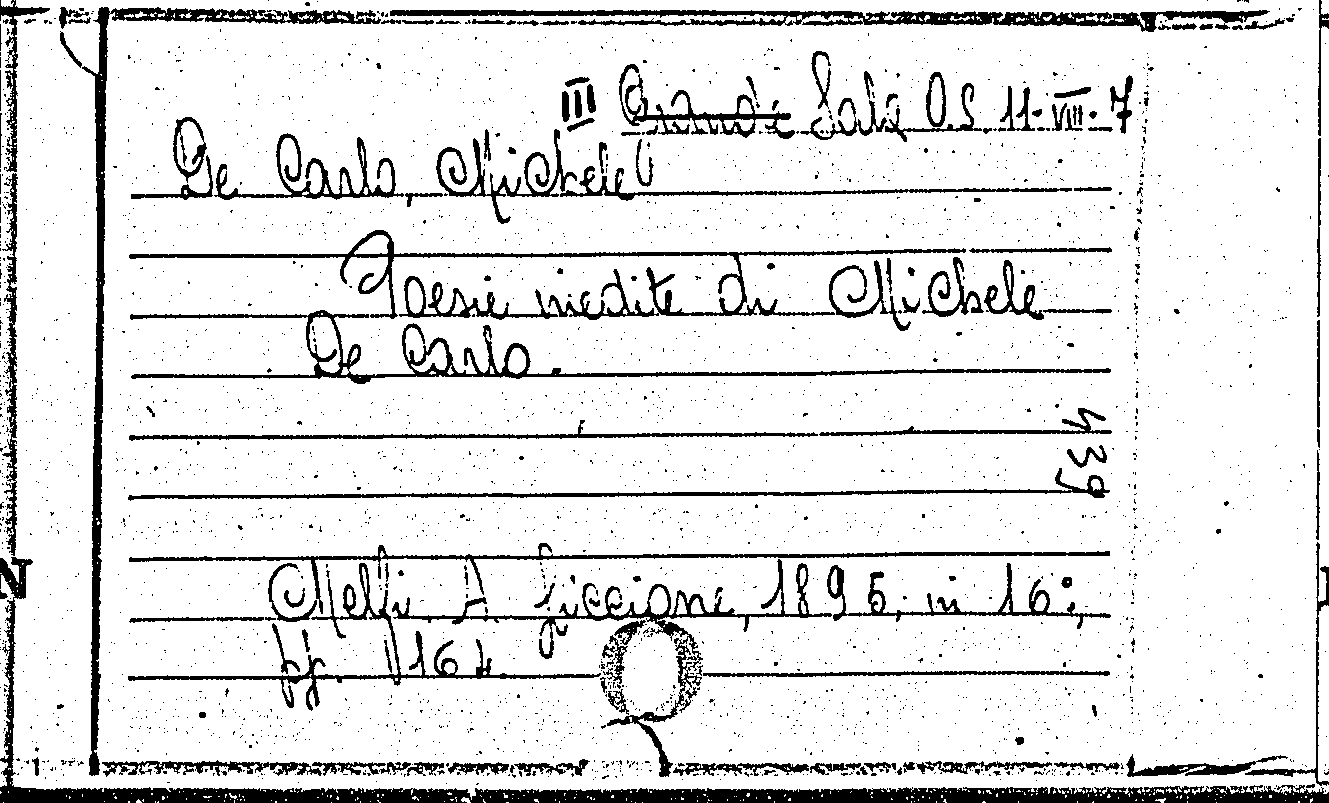 III Grande Sala O.S. 11-VIII-7
De Carlo, Michele
Poesie inedite di Michele
De Carlo.
439
Melfi. A. Liccione, 1895, in 16°,
pp. 164.
N